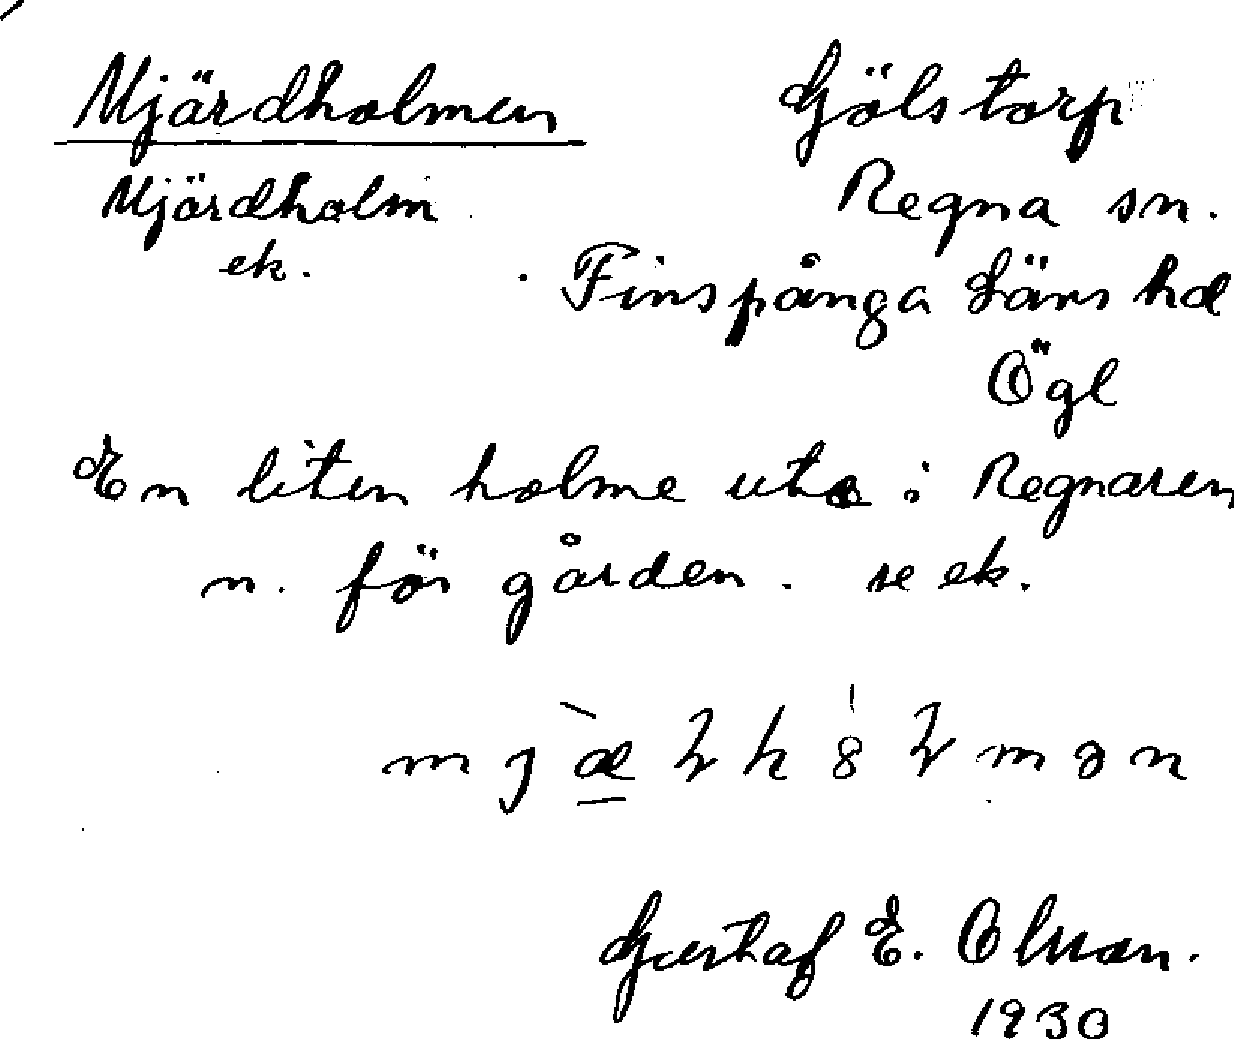 Mjärdholmen
Gölstorp
Mjärdholm
ek.
Regna sn.
Finspånga Läns hd
Ögl
En liten holme ute i Regnaren
n. för gården. se ek.
Gustaf E. Olsson.
1930